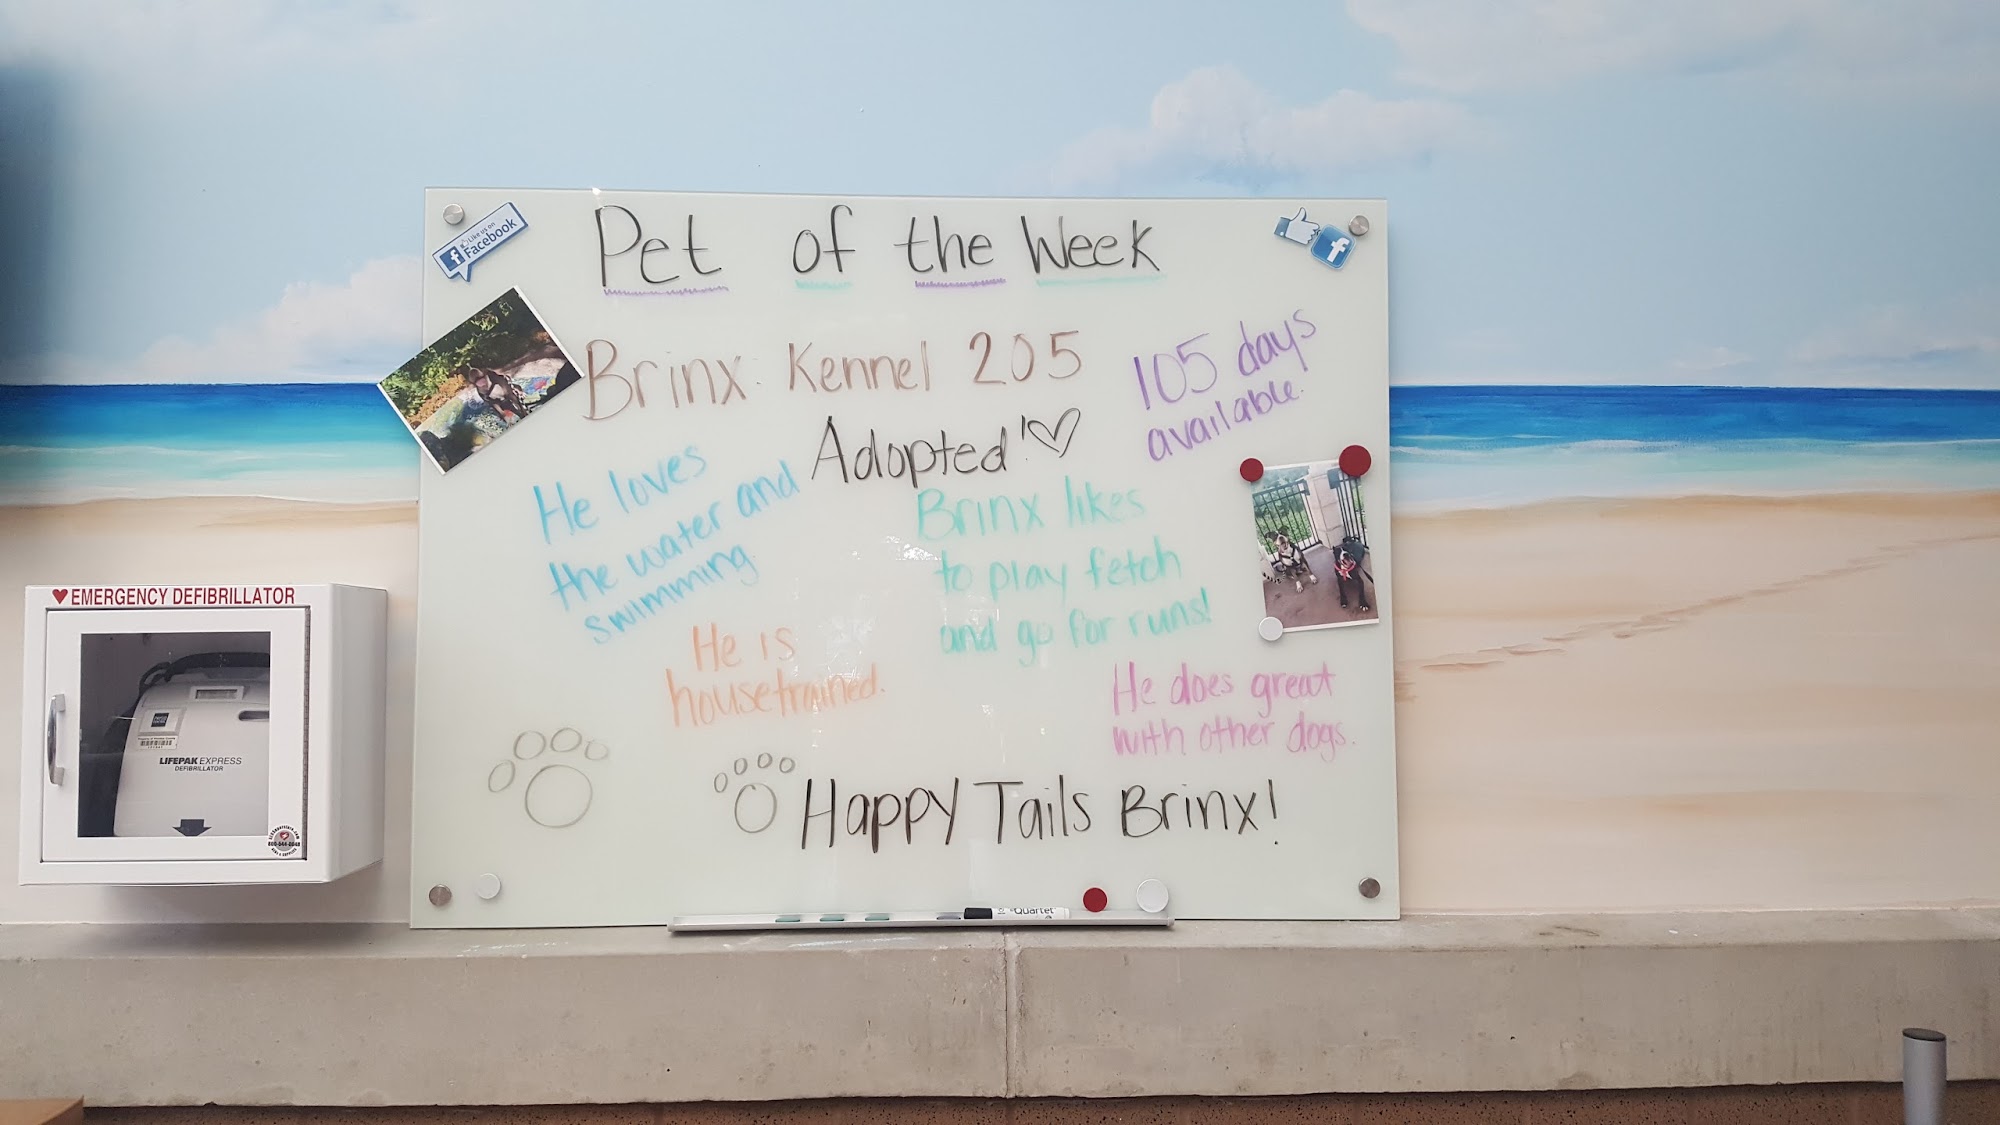 Pet of the Week
Like us on
Facebook
f
f
Brinx: Kennel 205
105 days
available.
Adopted!
He loves
the water and
swimming.
Brinx likes
to play fetch
and go for runs!
He is
housetrained.
He does great
with other dogs.
Happy Tails Brinx!
Quartet
EMERGENCY DEFIBRILLATOR
LIFEPAK EXPRESS
DEFIBRILLATOR